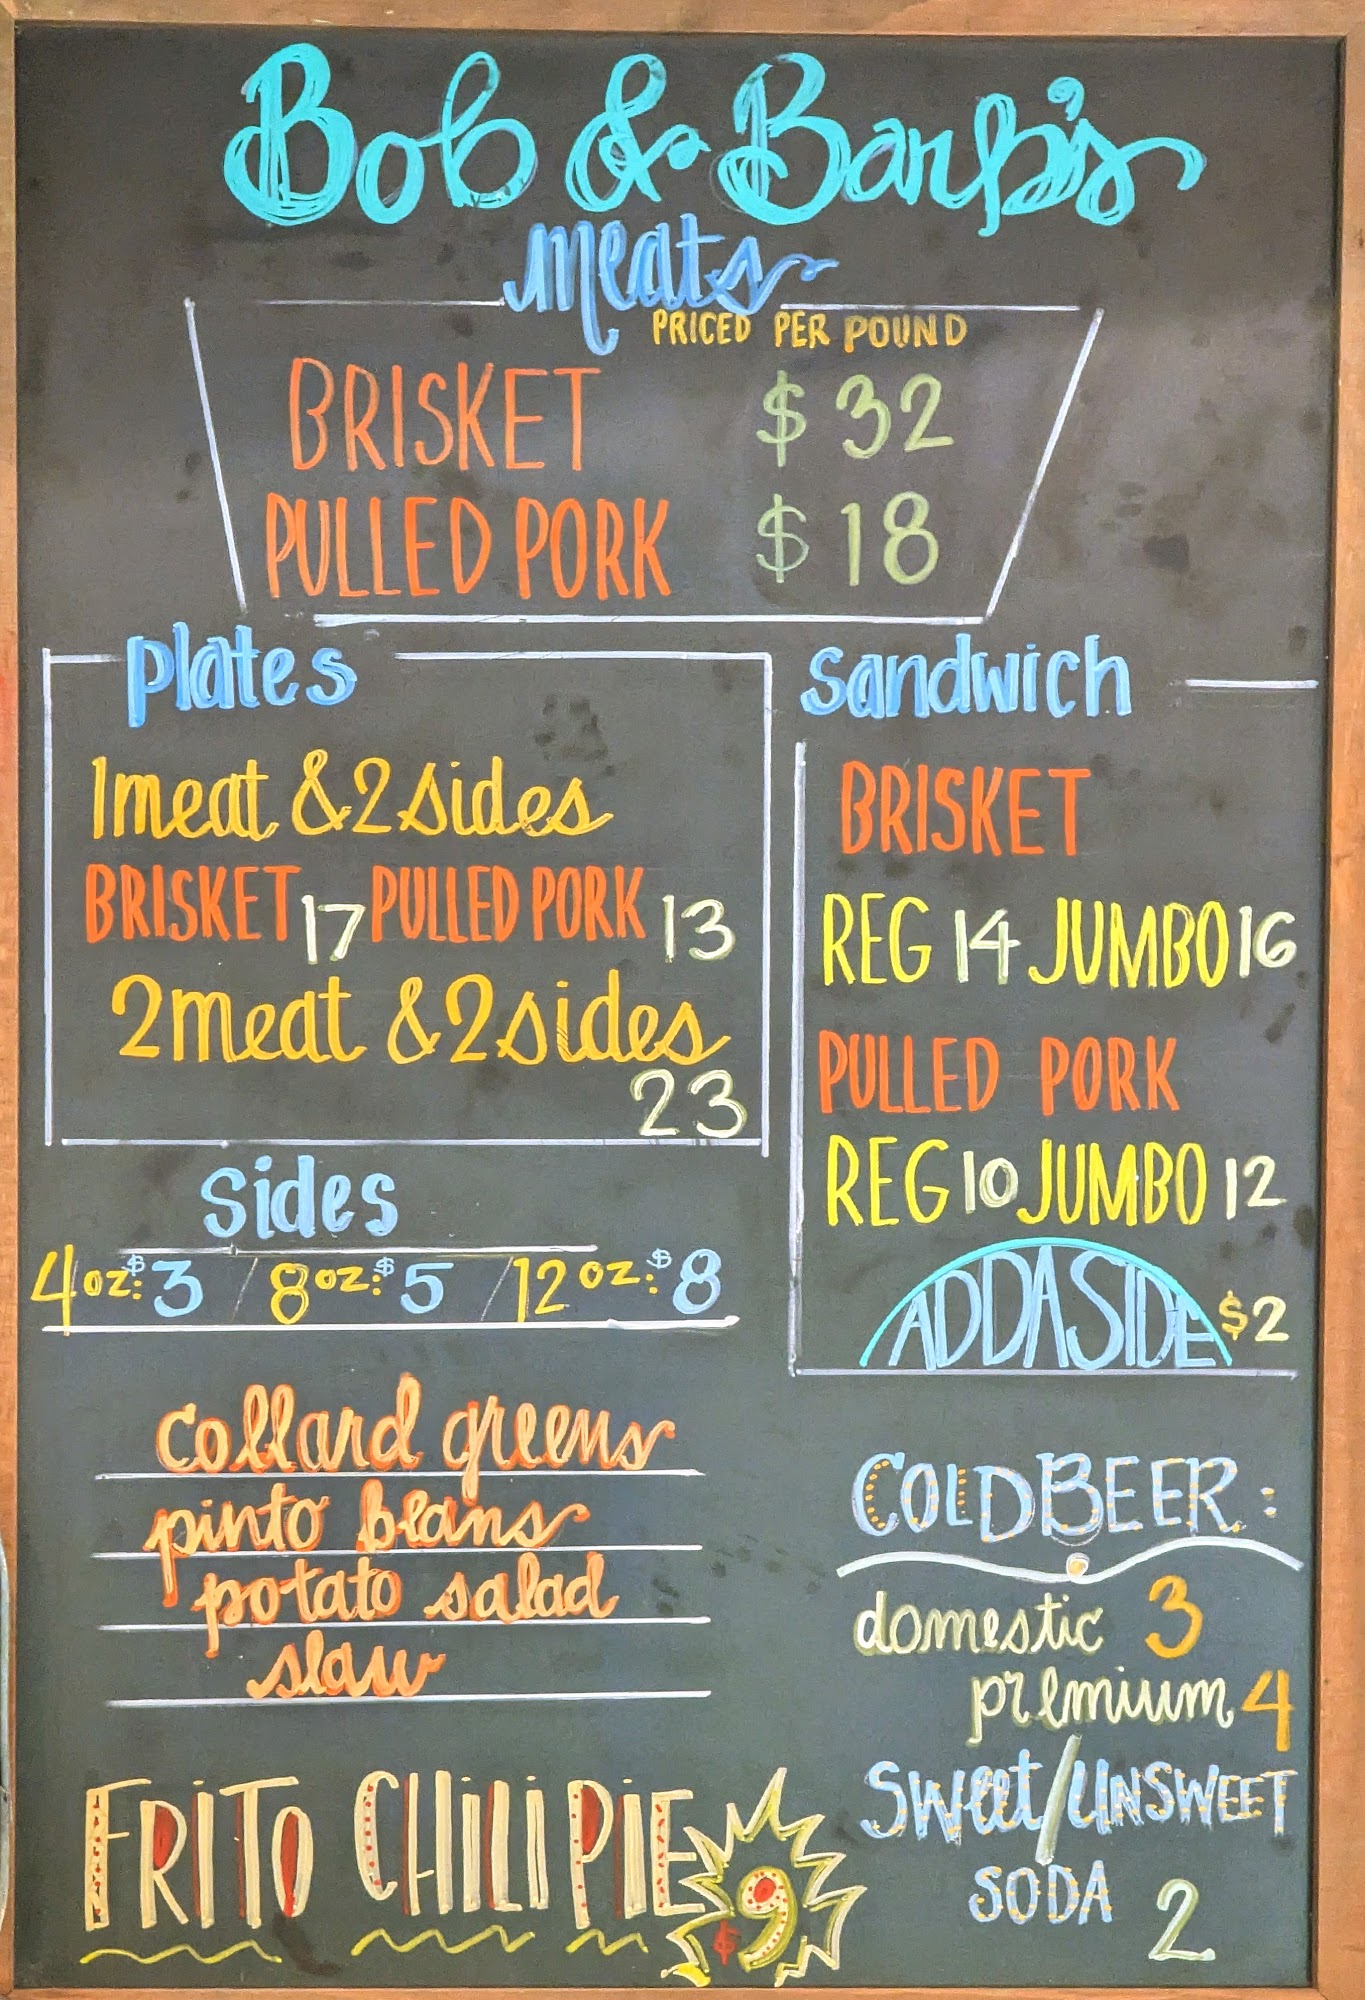 Bob & Barb's
meats
PRICED PER POUND
BRISKET $32
PULLED PORK $18
Plates
1meat & 2 sides
BRISKET 17 PULLED PORK 13
2meat & 2 sides
23
Sandwich
BRISKET
REG 14 JUMBO 16
PULLED PORK
REG 10 JUMBO 12
ADD A SIDE $2
Sides
4 oz: $3 / 8 oz: $5 / 12 oz: $8
collard greens
pinto beans
potato salad
slaw
COLD BEER:
domestic 3
premium 4
Sweet/UNSWEET
SODA 2
FRITO CHILI PIE $9